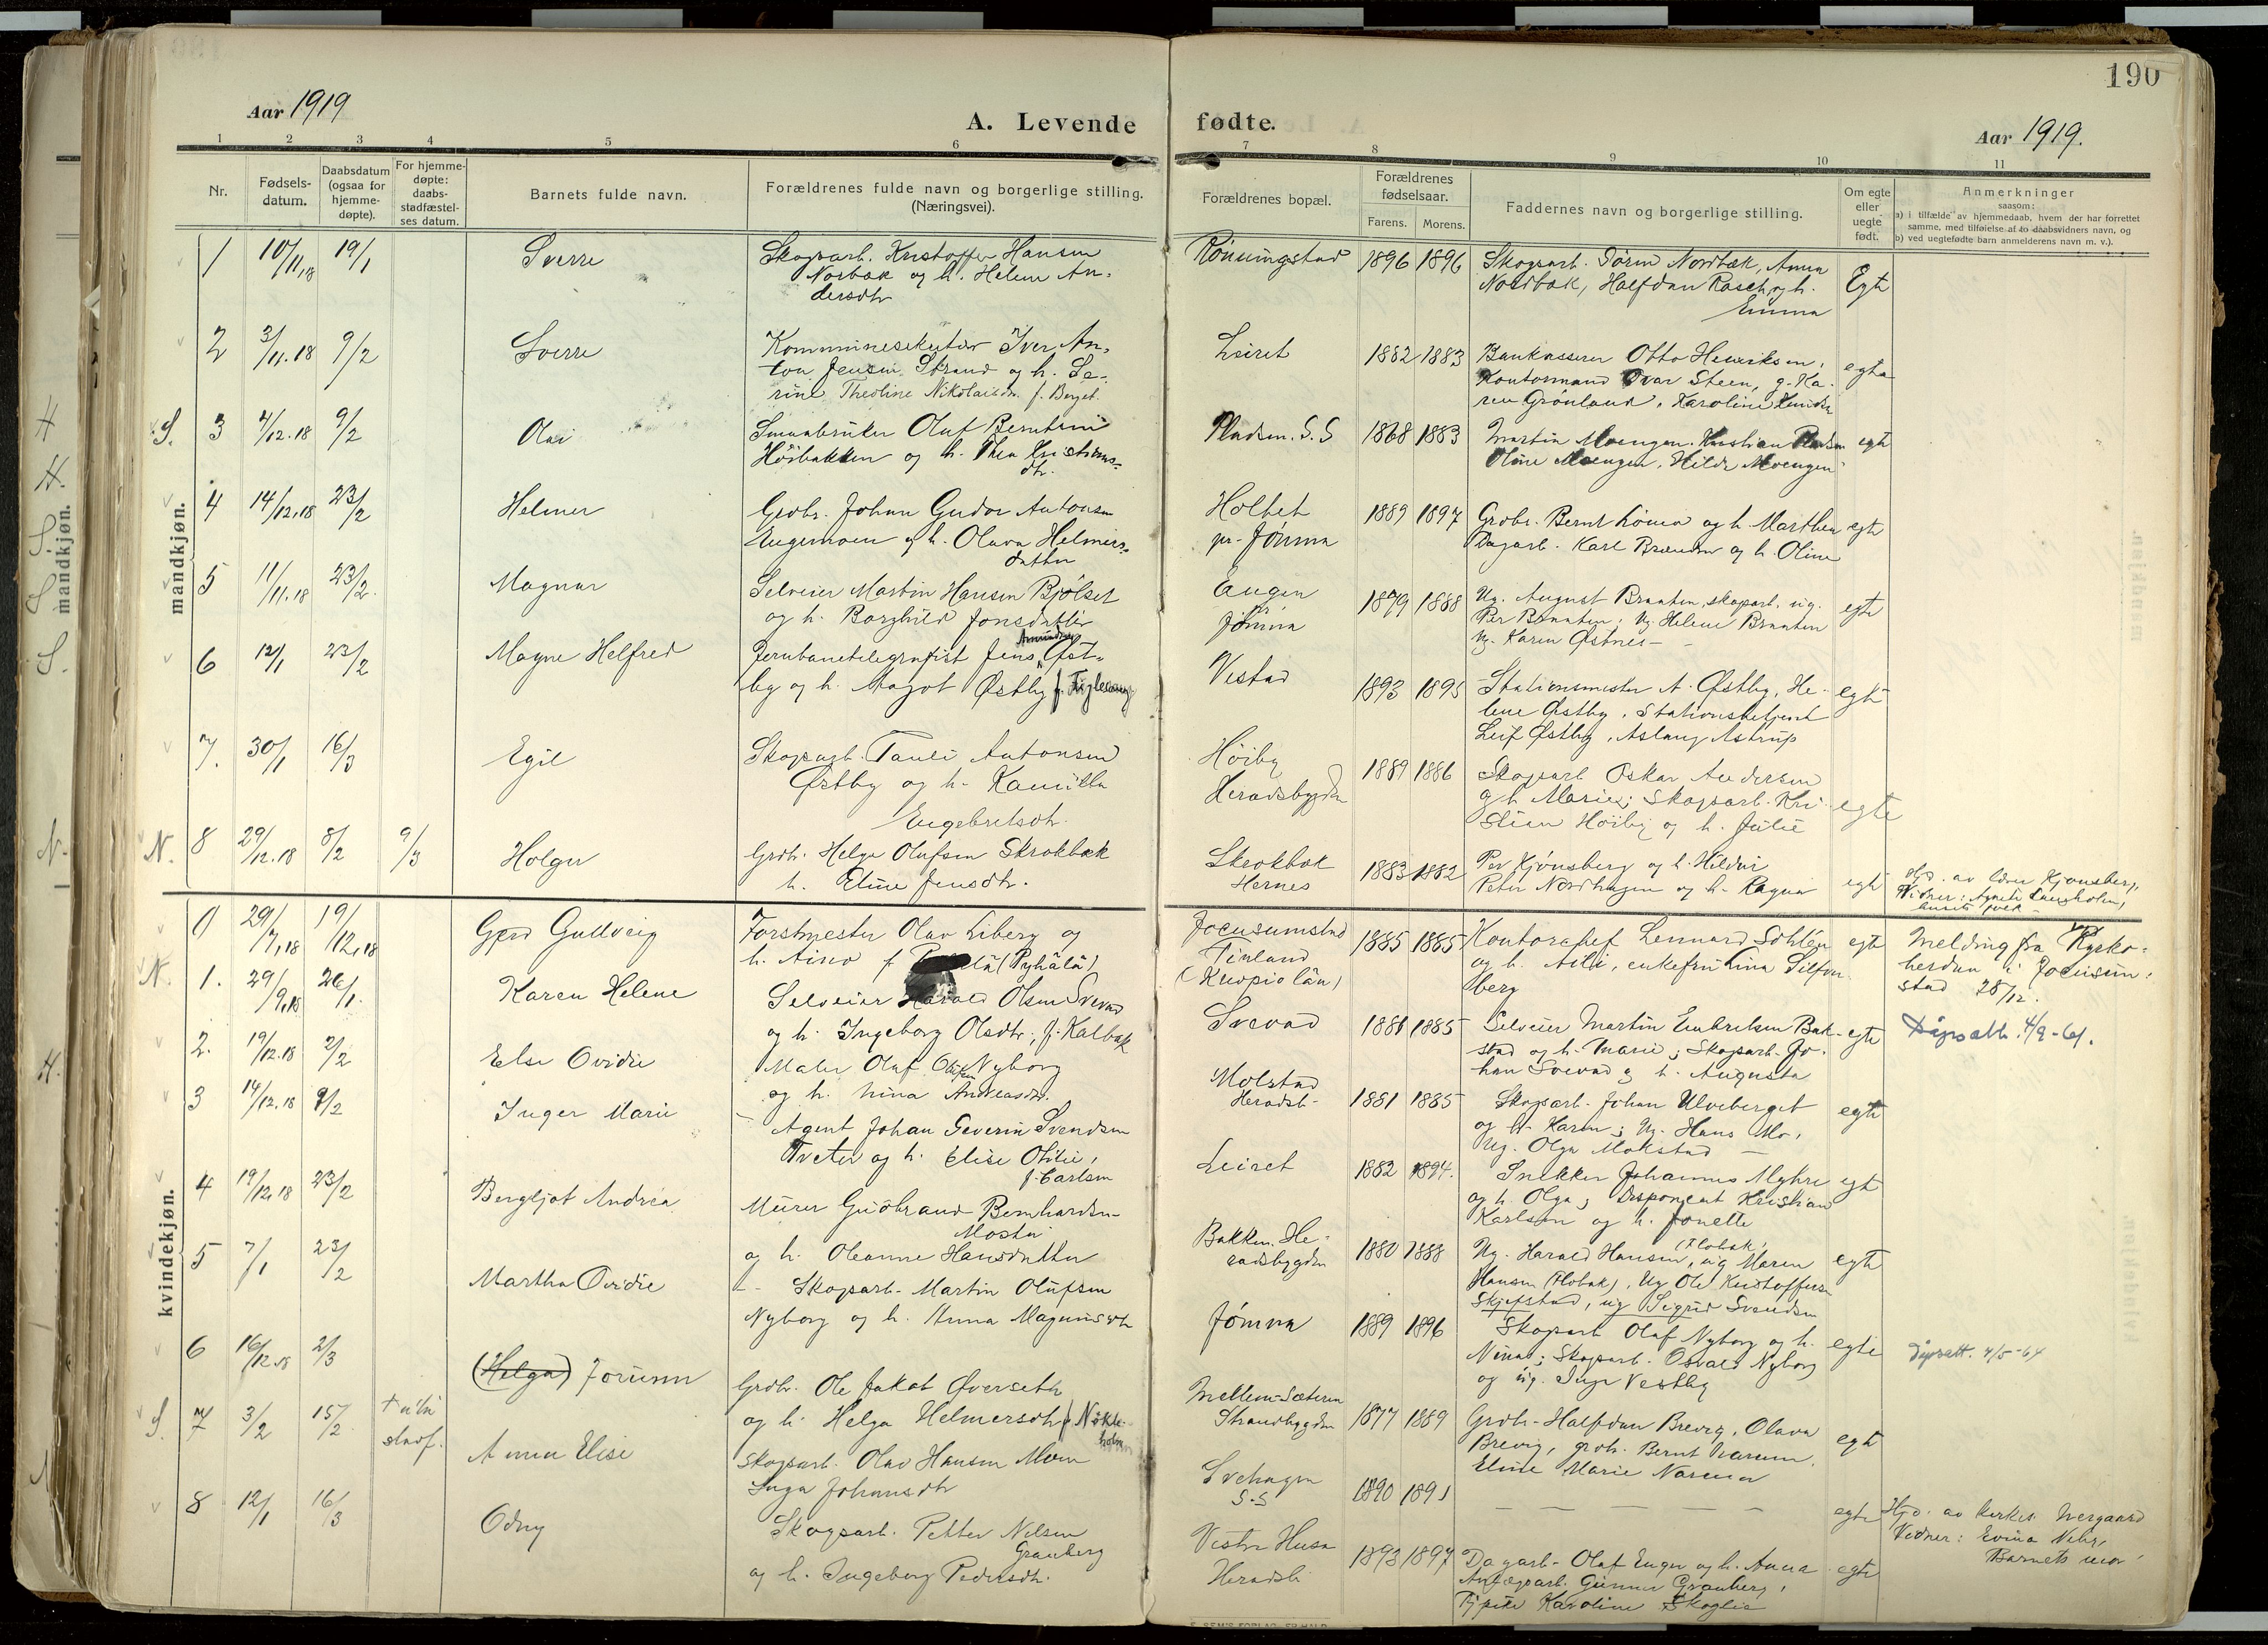 190
Aar 1919
A. Levende fødte.
Aar 1919.
1 2 3 4 5 6 7 8 9 10 11
Nr.
Fødsels-
datum.
Daabsdatum
(ogsaa for
hjemme-
døpte).
For hjemme-
døpte:
daabs-
stadfæstel-
ses datum.
Barnets fulde navn.
Forældrenes fulde navn og borgerlige stilling.
(Næringsvei).
Forældrenes bopæl.
Forældrenes
fødselsaar.
Farens. Morens.
Faddernes navn og borgerlige stilling.
Om egte
eller
uegte
født.
Anmerkninger
saasom:
a) i tilfælde av hjemmedaab, hvem der har forrettet
samme, med tilføielse af to daabsvidners navn, og
b) ved uegtefødte barn anmelderens navn m. v.).
mandkjøn.
1 10/11.18 19/1 Sverre
Skogsarb. Kristoffer Hansen
Norbæk og h. Helene An-
dersdtr
Rønningstad 1896 1896
Skogsarb. Søren Nordbæk, Anna
Nordbæk, Halfdan Rasch og h.
Emma
Egte
2 3/11.18 9/2 Sverre
Kommunesekretær Iver An-
ton Jensen Strand og h. Se-
rine Theoline Nikolaisdr. f. Berget
Leiret 1882 1883
Bankkasserer Otto Henriksen,
Kontormand Ivar Steen, g. Ka-
ren Grønland, Karoline
egte
S. 3 4/12.18 9/2 Olav
Smaabruker Oluf Berntsen
Høibakken og h. Thea Kristians-
dtr.
Pladsen. S.S 1868 1883
Martin Moengen. Kristian
Oline Moengen, Hilda Moengen
egte
4 14/12.18 23/2 Helmer
Grdbr. Johan Gudor Antonsen
Engemoen og h. Olava Helmers-
datter
Holtet
pr. Jømna
1889 1897
Grdbr. Bernt Lømo og h. Marthea
Dagarb. Karl Brænden og h. Oline
egte
5 11/11.18 23/2. Magnar
Selveier Martin Hansen Bjølset
og h. Borghild Jonsdatter
Engen
Jømna
1879 1888
Ug. August Braaten, skogsarb. ug.
Per Braaten; Ug. Helene Braaten
Ug. Karen Østnes -
egte
6 12/1 23/2 Magne Helfred
Jernbanetelegrafist Jens Amundsen Øst-
by og h. Magot Østby f. Fuglesang
Vestad 1893 1895
Stationsmester A. Østby, He-
lene Østby, Stationsbetjent
Leif Østby, Aslaug Astrup
egte
7. 30/1 16/3 Egil
Skogsarb. Pauli Antonsen
Østby og h. Kamilla
Engebretsdtr.
Høiby
Heradsbygden
1889 1886
Skogsarb Oskar Andersen
og h. Marie; Skogsarb. Kri-
stian Høiby og h. Julie
egte
N. 8 29/12.18 8/2 9/3 Holger
Grdbr. Helge Olufsen Skrokbæk
h. Eline Jensdtr.
Skrokbæk
Hernes
1883 1882
Per Kjønsberg og h. Hildur
Peter Nordhagen og h. Ragna
egte
Hjd. av lærer Kjønsberg,
Vidner: Agnete
kvindekjøn.
0 29/7.18 19/12.18 Gerd Gullveig
Forstmester Olav Liberg og
h. Aino f. (Pyhälä)
Joensuustad
Finland
(Kuopio län)
1885 1885
Kontorchef Lennard Sohlén
og h. Aili, enkefru Lina Silfver
berg
egte
Melding fra Kyrko-
herden i Joensuu-
stad 28/12.
N. 1. 29/9.18 26/1. Karen Helene
Selveier Harald Olsen Svevad
og h. Ingeborg Olsdtr, f. Kalbæk
Svevad 1881 1885
Selveier Martin Embretsen Bak-
stad og h. Marie; Skogsarb. Jo-
han Svevad og h. Augusta
egte
Dåpsatt. 4/9-61.
2. 19/12.18 2/2 Else Ovidie
Maler Oluf Olufsen Nyborg
og h. Nina Andreasdr.
Molstad
Heradsb.
1881 1885
Skogsarb. Johan Ulveberget
og h. Karen; Ug. Hans Mo,
Ug. Olga Mokstad -
egte
3 14/12.18 9/2 Inger Marie
Agent Johan Severin Svendsen
Tveter og h. Elise Otilie,
f. Carlsen
Leiret 1882 1894.
Snekker Johannes Myhre
og h. Olga; Disponent Kristian
Karlsen og h. Jonette
egte
4 19/12.18 23/2 Bergljot Andrea
Murer Gudbrand Bernhardsen
Mostu
og h. Oleanne Hansdatter
Bakken. He-
radsbygden
1880 1888
Ug. Harald Hansen (Flobak), ug Maren
Hansen (Flobak), Ug Ole Kristoffersen
Skjefstad, ug Sigrid Svendsen
egte
5 7/1 23/2 Martha Ovidie
Skogsarb. Martin Olufsen
Nyborg og h. Anna Magnusdtr
Jømna 1889 1896
Skogsarb Olaf Nyborg og h.
Nina; Skogsarb. Osvald Nyborg
og ug. Inga Vestby
egte
Dåpsatt. 4/5-64
6 16/12.18 2/3 (Helga) Jorunn
Grdbr. Ole Jakob Øverseth
og h. Helga Helmersdtr f. Nøkle-
holm
Mellem-Sæteren
Strandbygden
1877 1889
Grdbr. Halfdan Brevig, Olava
Brevig, grdb. Bernt
Eline Marie
egte
S. 7 3/2 15/2. Anna Elise
Skogsarb. Olav Hansen Moen
Inga Johansdtr
Svehagen
S.S
1890 1891
— — — — —
egte
Hjd. av kirkes. Nergaard
Vidner:
Barnets mor
8 12/1 16/3 Odny
Skogsarb. Petter Nilsen
Granberg
og h. Ingeborg Pedersdtr.
Vestre Husa
Heradsb.
1893 1897
Dagarb. Olaf Enger og h. Anna
Anlægsarb. Gunnar Granberg,
Tj.pike Karoline Skoglie
egte